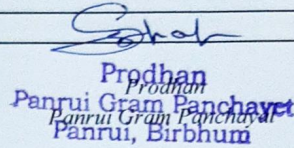 Prodhan
Prodhan
Panrui Gram Panchayet
Panrui Gram Panchayat
Panrui, Birbhum